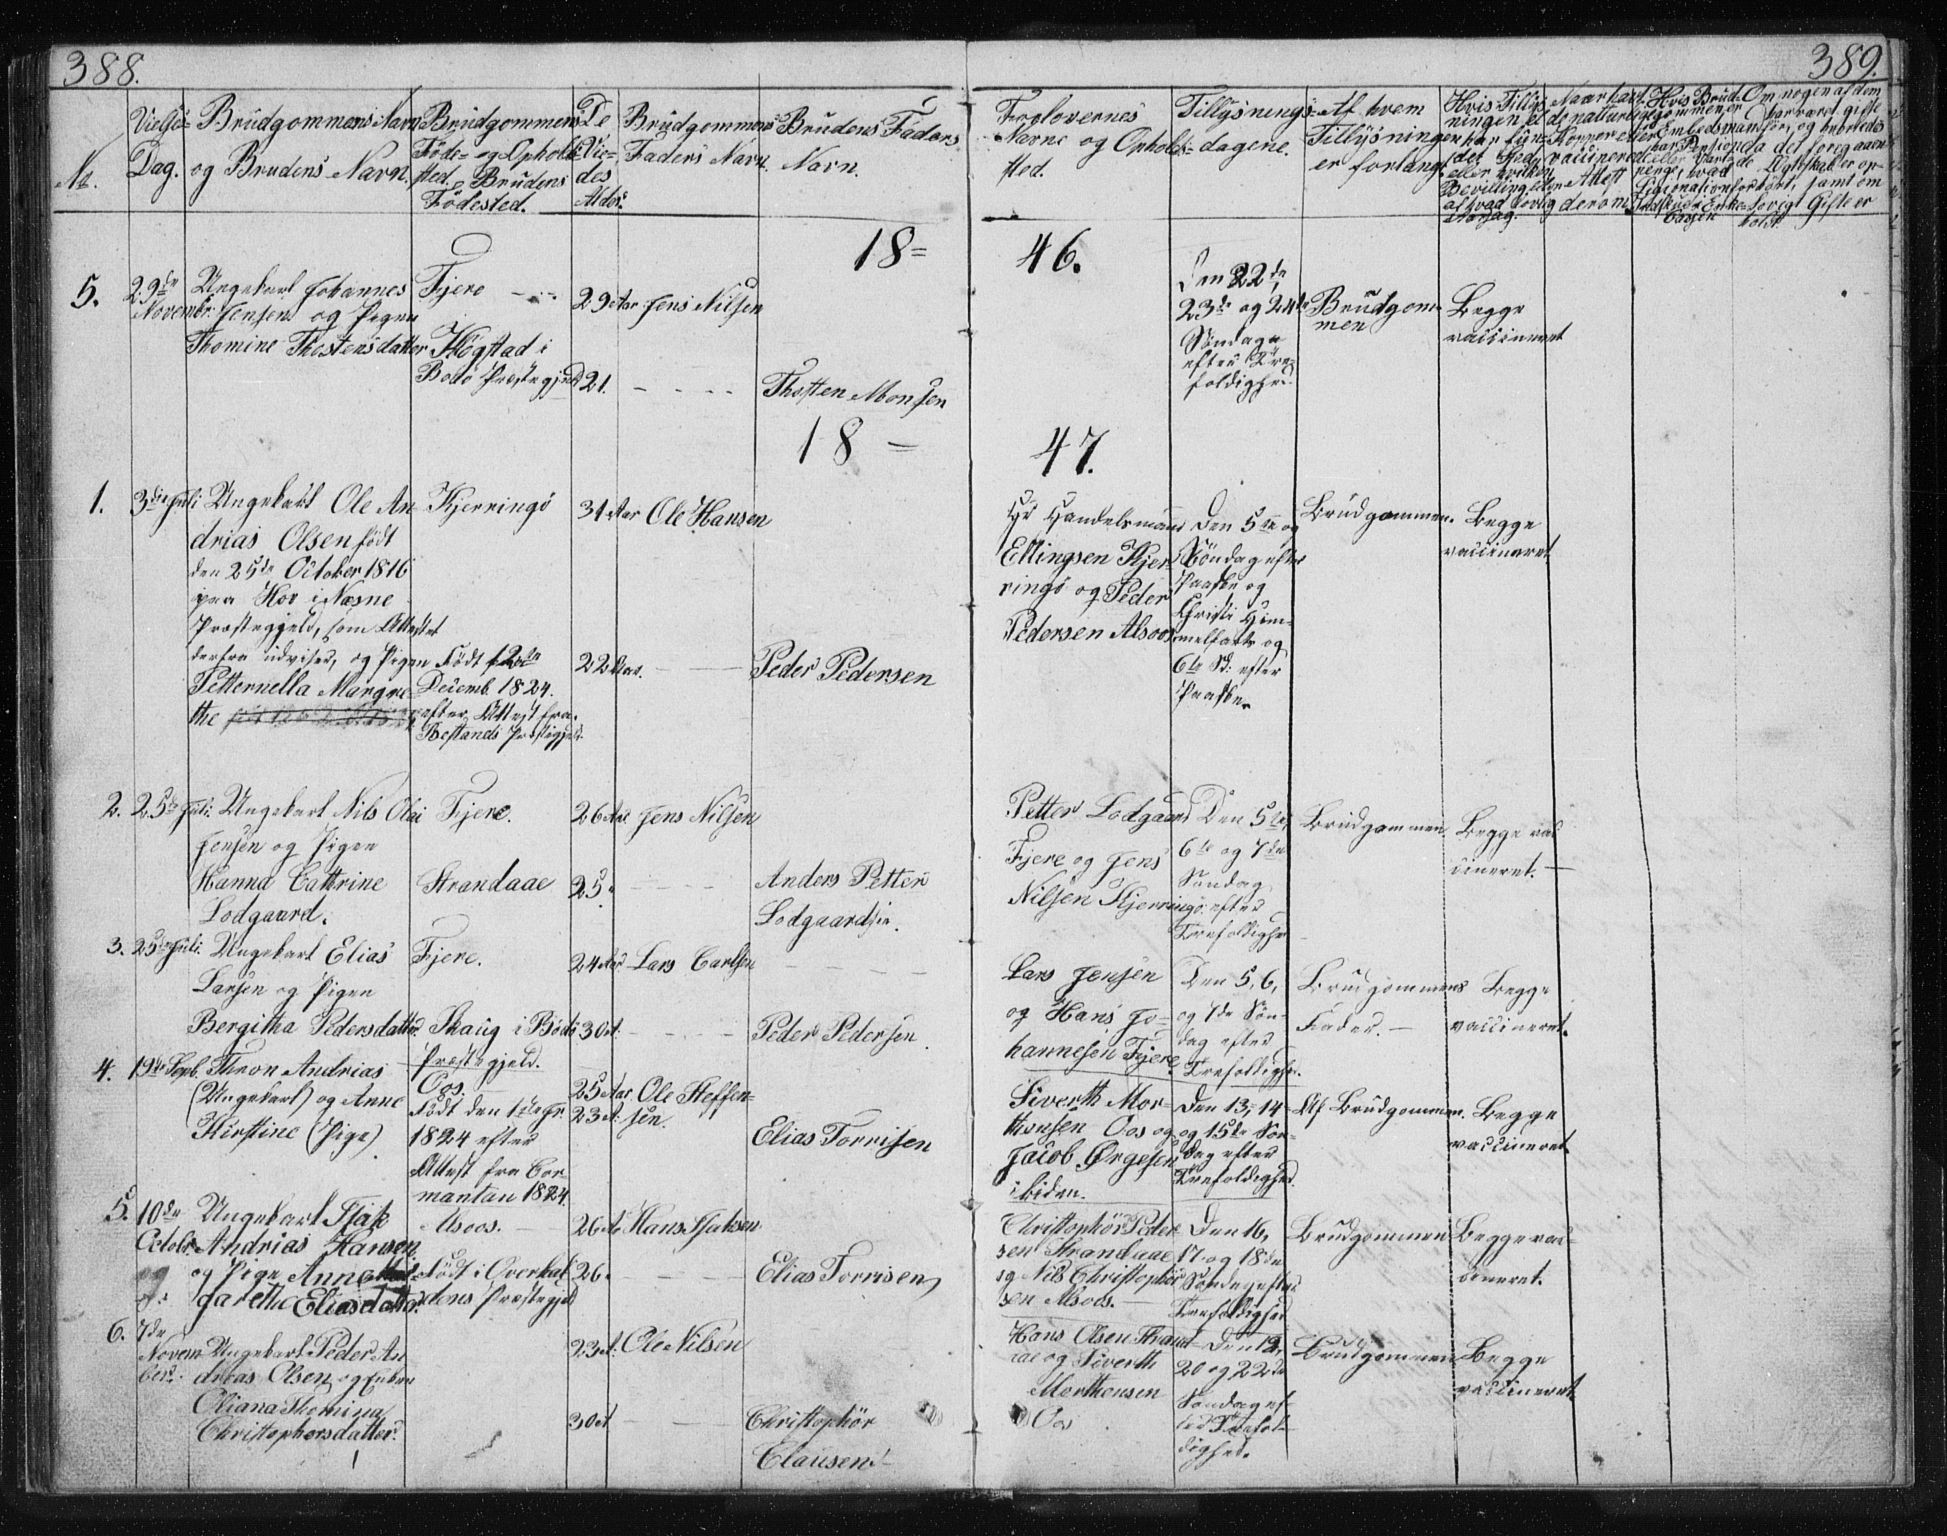 388.
389.
No.
Vielses-
Dag.
Brudgommens Navn
og Brudens Navn.
Brudgommens
Føde- og Opholds-
sted. Brudens
Fødested.
De
Vie-
des
Alder.
Brudgommens
Faders Navn.
Brudens Faders
Navn.
Forlovernes
Navne og Ophold-
sted.
Tillysnings-
dagene.
Af hvem
Tillysningen
er forlangt.
18=
46.
5.
29de
Novembr.
Ungekarl Johannes
Jensen og Pigen
Thomine Thostensdatter
Fjere
Høgstad i
Bodø Præstegjeld
29 Aar
21.
Jens Nilsen
Thosten Monsen
Den 22de,
23de og 24de
Søndag
efter Tre-
foldighed.
Brudgom-
men
Begge
vaccineret
18 =
47.
1.
3die Juli
Ungekarl Ole An
drias Olsen født
den 25de October 1816
paa Hov i Næsne
Præstegjeld, som Attestet
derfra udviser, og Pigen
Petternella Margre
the
Kjerringø
Født 12te
Decemb. 1824.
efter Attest fra
Præstegjeld.
31 Aar
22 Aar.
Ole Hansen
Peder Pedersen
Hr Handelsmand
Ellingsen Kjer
ringø og Peder
Pedersen Alsoos
Den 5te og
Søndag efter
Paaske og
Christi Him-
melfarts og
6te S: efter
Paaske.
Brudgommen.
Begge
vaccineret.
2.
25de Juli.
Ungekarl Nils Olai
Jensen og Pigen
Hanna Cathrine
Lodgaard.
Fjere.
Strandaae
26 Aar
25.
Jens Nilsen
Anders Petter
Lodgaardsen.
Petter Lodgaard
Fjere og Jens
Nilsen Kjerringø
Den 5te,
6te og 7de
Søndag
efter
Trefoldighed
Brudgommen.
Begge vac
cineret.
3.
25de Juli.
Ungekarl Elias
Larsen og Pigen
Bergitha Pedersdatter.
Fjere.
Skaug i Bodø
Præstegjeld.
24 Aar
30 A.
Lars Carlsen
Peder Pedersen.
Lars Jensen
og Hans Jo-
hannesen Fjere.
Den 5, 6,
og 7de Søn-
dag efter
Trefoldighed.
Brudgommens
Fader.
Begge
vaccineret.
4.
19de Sepb.
Thron Andrias
(Ungekarl) og Anne
Kirstine (Pige).
Oos.
Født den
1824 efter
Attest fra Cor
mantan 1824
25 Aar
23 A.
Ole Steffen-
sen.
Elias Torrisen
Siverth Mor-
thensen Oos og
Jacob Ørgesen
ibiden.
Den 13, 14
og 15de Søn-
dag efter
Trefoldighed.
Af Brudgommen.
Begge
vaccineret.
5.
10de
Octobr.
Ungekarl Isak
Andrias Hansen
og Pige Anne Mar
garethe Eliasdatter
Alsoos.
Født i Overhal
dens Præstegjeld
26 A.
26.
Hans Isaksen
Elias Torrisen
Christophor Peder
sen Strandaae
og Nils Christopher
sen Alsoos.
Den 16,
17 og 18de
Søndag efter
Trefoldighed
Brudgommen
Begge vac-
cineret.
6.
7de
Novem
ber.
Ungekarl Peder An
dreas Olsen og Enken
Oliana Thomina
Christophorsdatter.
23 A.
30 A
Ole Nilsen
Christophor
Clausen.
Hans Olsen Strand
aae og Siverth
Morthensen
Oos
Den 19,
20 og 22de
Søndag ef-
ter Trefol-
dighed.
Brudgommen
Begge
vaccineret.